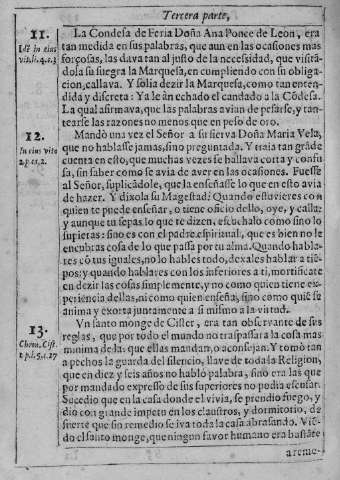 Tercera parte,
11.
Idē in eius vit. li. 4. c. 3
La Condesa de Feria Doña Ana Ponce de Leon, era
tan medida en sus palabras, que aun en las ocasiones mas
forçosas, las dava tan al justo de la necessidad, que visitā-
dola su suegra la Marquesa, en cumpliendo con su obliga-
cion, callava. Y solia dezir la Marquesa, como tan enten-
dida y discreta: Ya le àn echado el candado a la Cōdesa.
La qual afirmava, que las palabras avian de pesarse, y tan-
tearse las razones no menos que en peso de oro.
12.
In eius vita
2. p. c. 1, 2.
Mandò una vez el Señor a su sierva Doña Maria Vela,
que no hablasse jamas, sino preguntada. Y traia tan grāde
cuenta en esto, que muchas vezes se hallava corta y confu-
sa, sin saber como se avia de aver en las ocasiones. Fuesse
al Señor, suplicādole, que la enseñasse lo que en esto avia
de hazer. Y dixola su Magestad: Quando estuvieres con
quien te puede enseñar, o tiene oficio dello, oye, y calla:
y aunque tu sepas lo que te dizen, escuchalo como sino lo
supieras: sino es con el padre espiritual, que es bien no le
encubras cosa de lo que passa por tu alma. Quando habla-
res cō tus iguales, no lo hables todo, dexales hablar a tiē-
pos: y quando hablares con los inferiores a ti, mortificate
en dezir las cosas simplemente, y no como quien tiene ex-
periencia dellas, ni como quien enseña, sino como quiē se
anima y exorta juntamente a si mismo a la virtud.
13.
Chron. Cist.
t. p. l. 5. c. 27
Un santo monge de Cister, era tan observante de sus
reglas, que por todo el mundo no traspassara la cosa mas
minima de la: que ellas mandan, o aconsejan. Y tomò tan
a pechos la guarda del silencio, llave de toda la Religion,
que en diez y seis años no hablò palabra, sino era las que
por mandado expresso de sus superiores no podia escusar.
Sucediò que en la casa donde el vivia, se prendio fuego, y
dio con grande impetu en los claustros, y dormitorio, de
suerte que sin remedio se iva toda la casa abrasando. Viē-
do el santo monge, que ningun favor humano era bastāte
a reme-